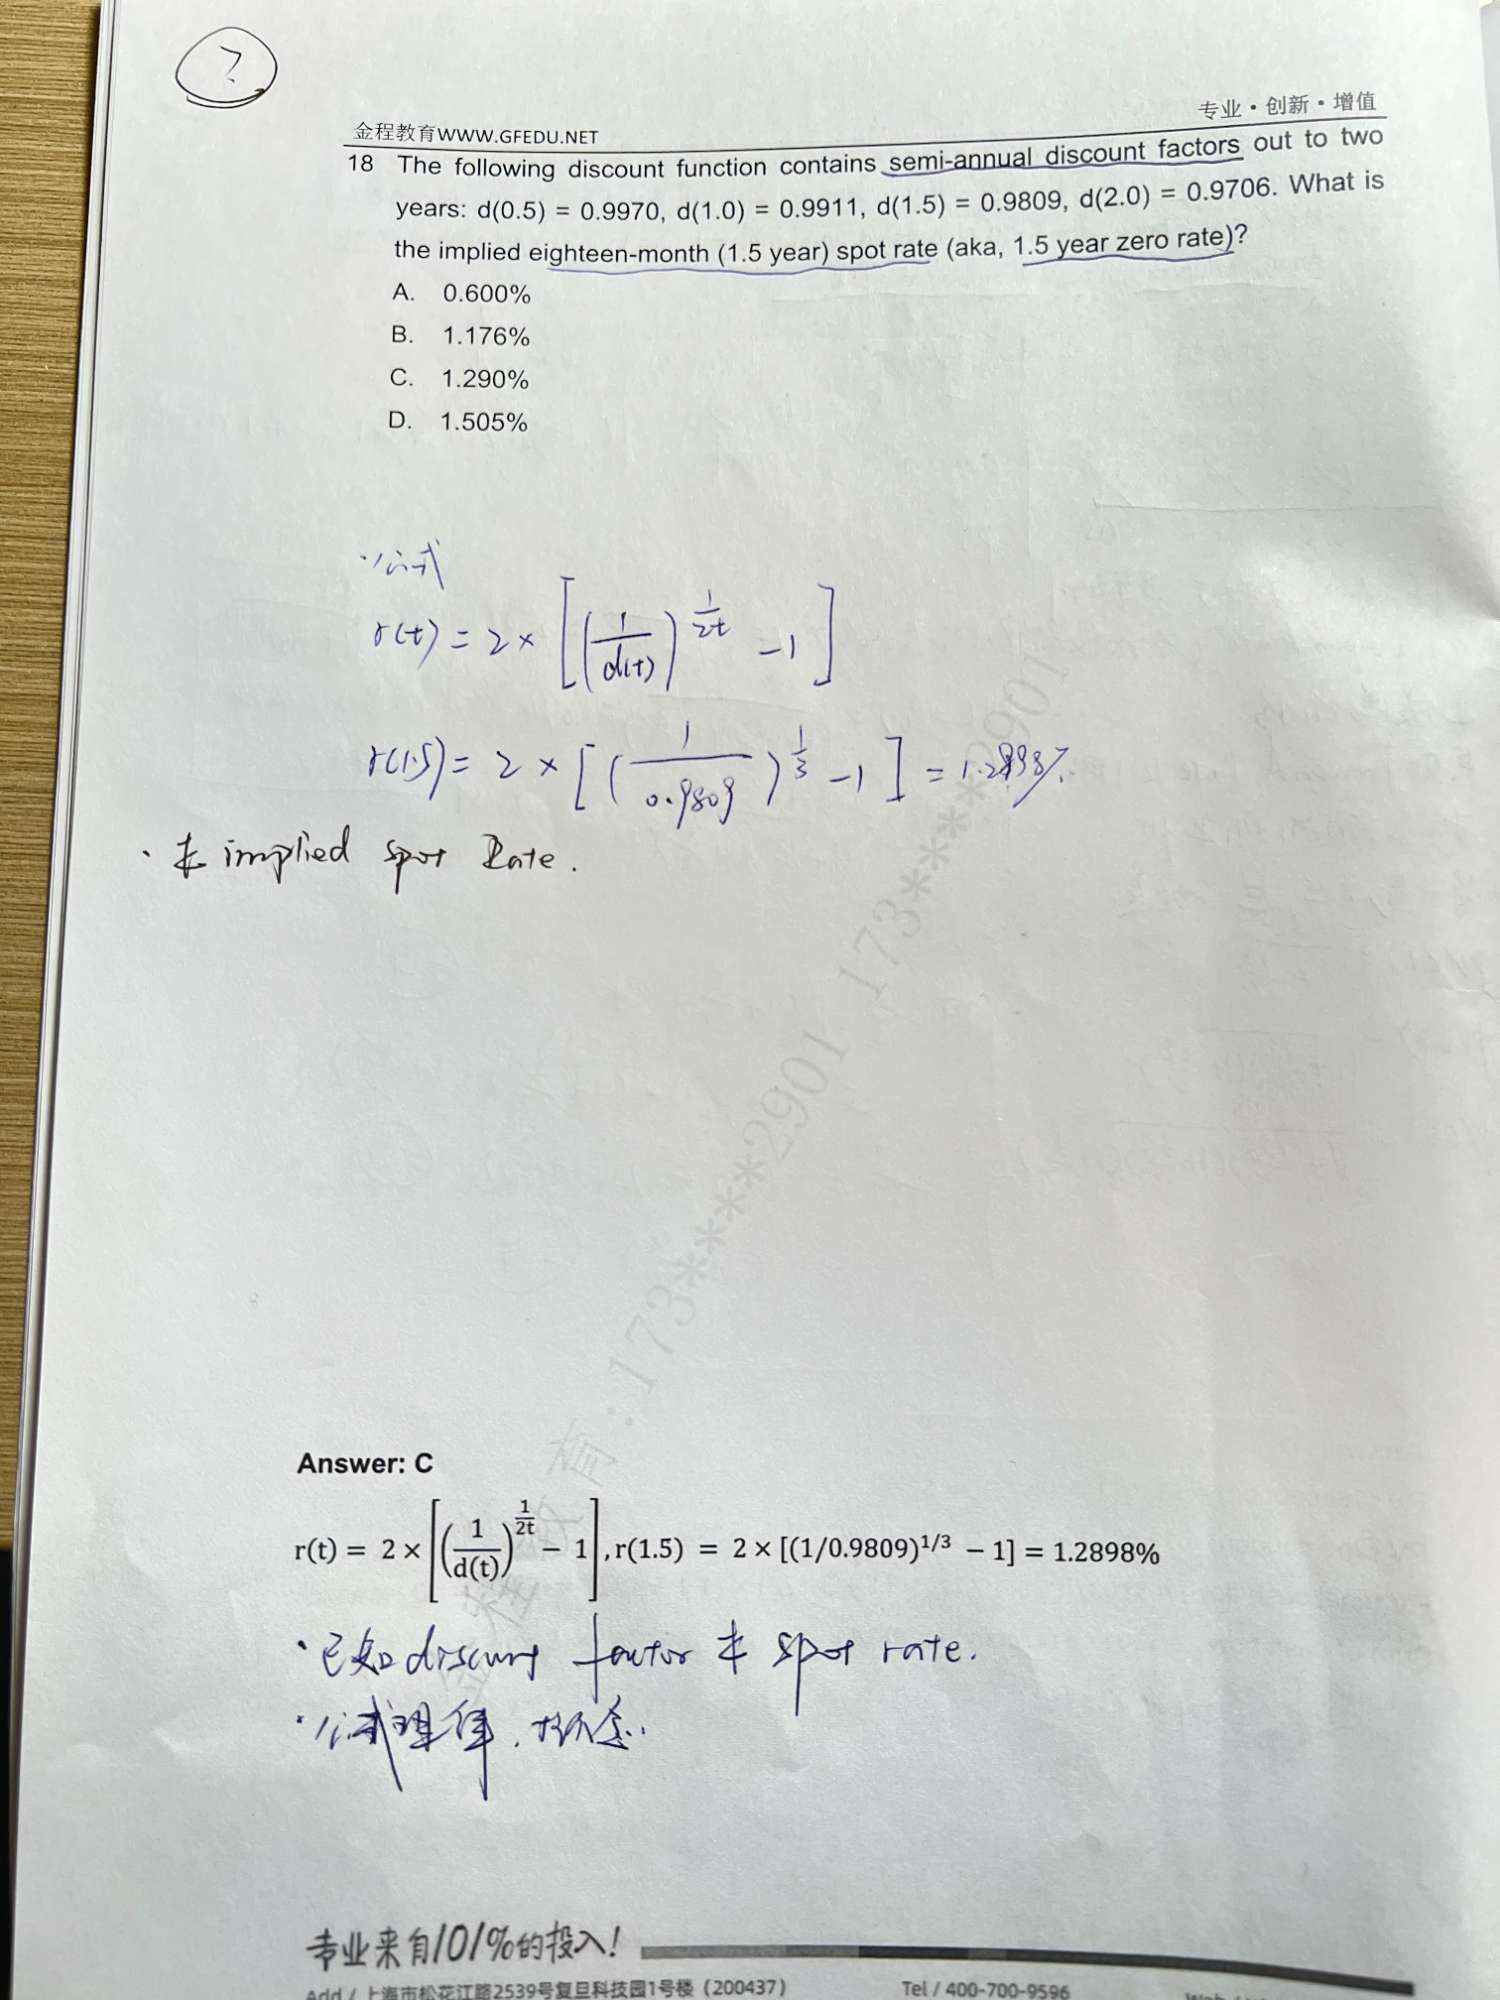 ?
专业·创新·增值
金程教育WWW.GFEDU.NET
18 The following discount function contains semi-annual discount factors out to two
years: d(0.5) = 0.9970, d(1.0) = 0.9911, d(1.5) = 0.9809, d(2.0) = 0.9706. What is
the implied eighteen-month (1.5 year) spot rate (aka, 1.5 year zero rate)?
A. 0.600%
B. 1.176%
C. 1.290%
D. 1.505%
·公式
r(t) = 2 × [(1/d(t))^(1/2t) - 1]
r(1.5) = 2 × [(1/0.9809)^(1/3) - 1] = 1.2898%.
· 求 implied spot Rate.
173****2901 173****2901
Answer: C
r(t) = 2 × [(1/d(t))^(1/2t) − 1], r(1.5) = 2 × [(1/0.9809)^1/3 − 1] = 1.2898%
·已知 discount factor 求 spot rate.
·公式理解.概念.
专业来自101%的投入!
Add / 上海市松花江路2539号复旦科技园1号楼（200437） Tel / 400-700-9596